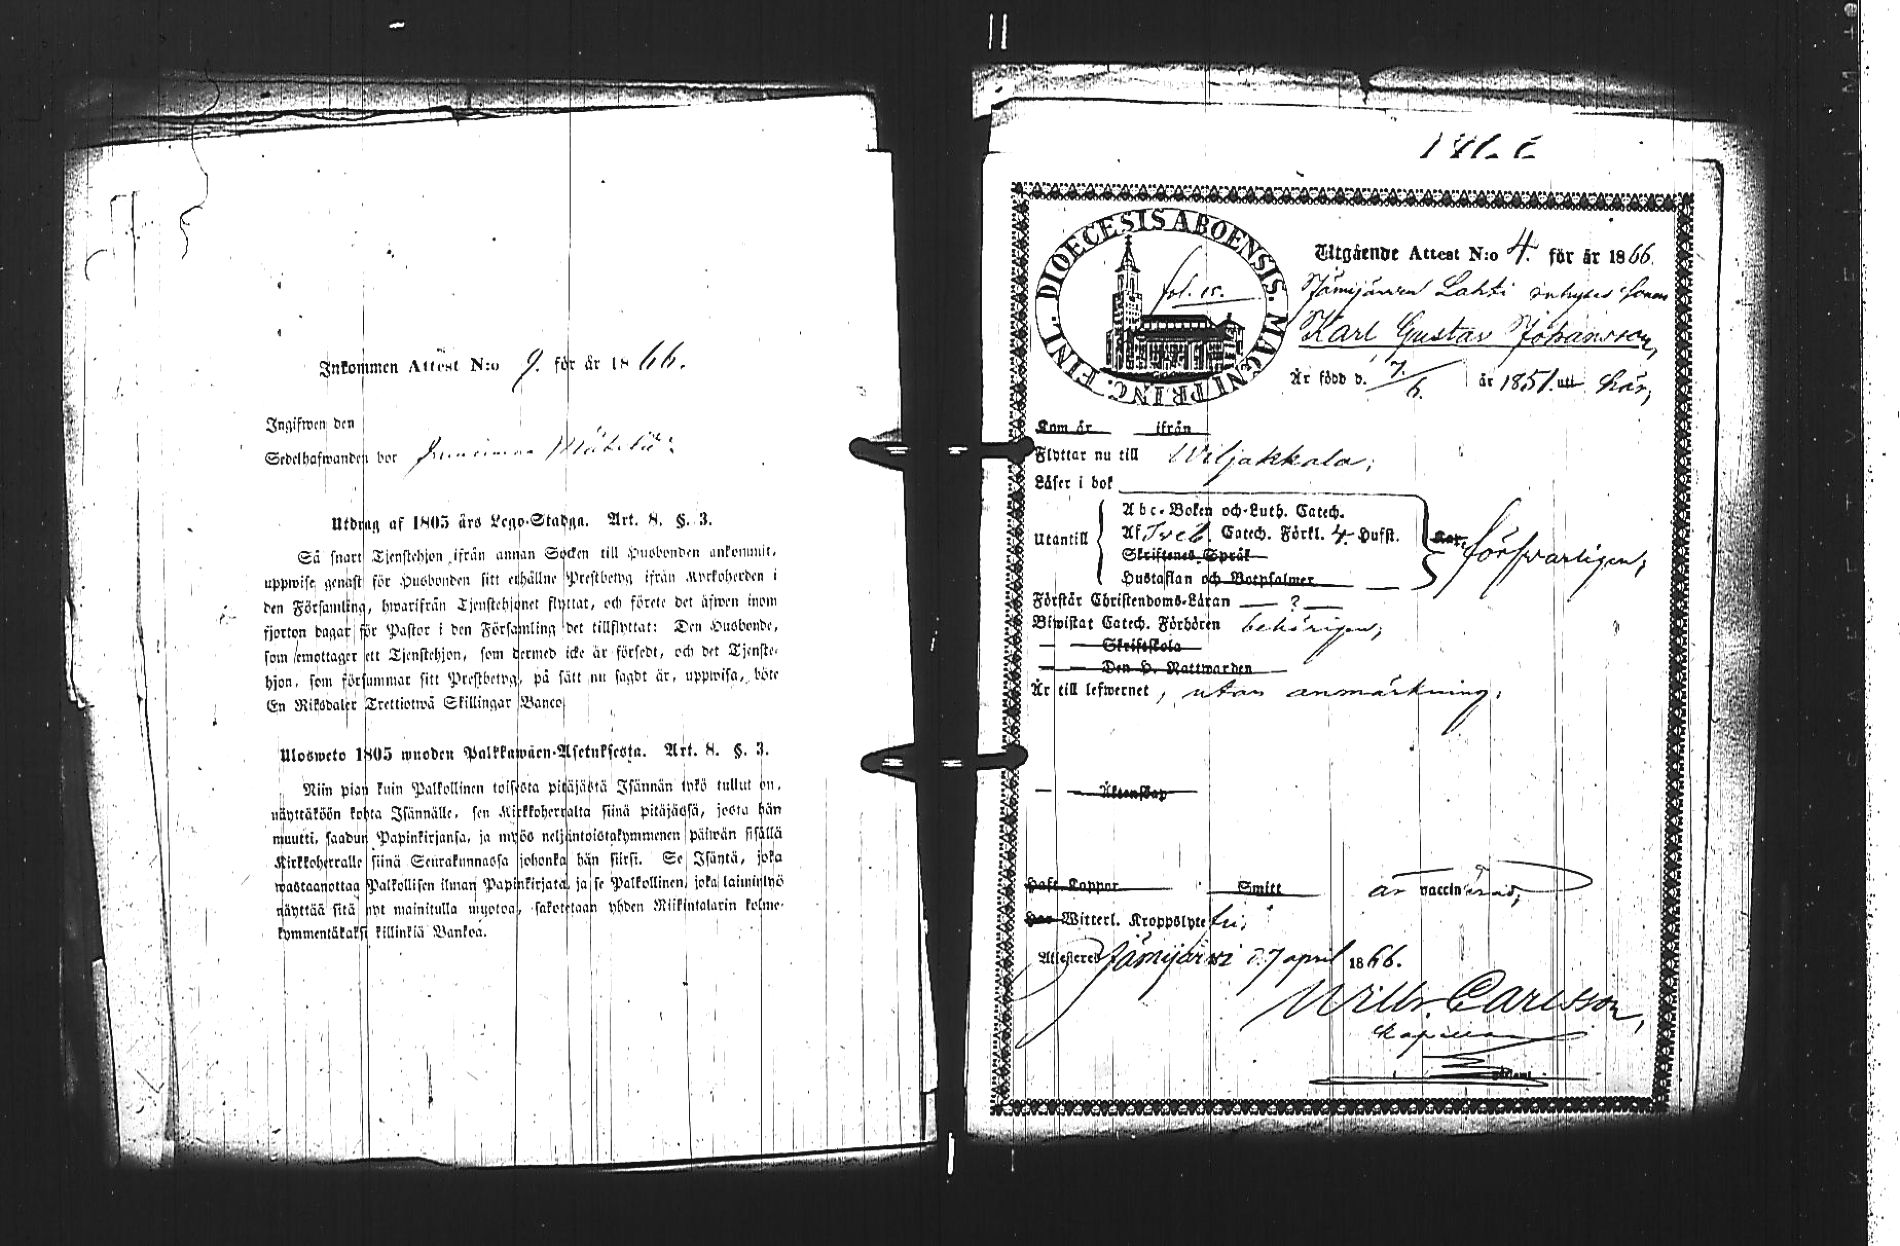 Inkommen Attest N:o 9. för år 1866.
Ingifwen den
Sedelhafwanden bor
Utdrag af 1805 års Lego-Stadga. Art. 8. §. 3.
Så snart Tjenstehjon ifrån annan Socken till Husbonden ankommit,
uppwise genast för Husbonden sitt erhållne Prestbetyg ifrån Kyrkoherden i
den Församling, hwarifrån Tjenstehjonet flyttat, och förete det äfwen inom
fjorton dagar för Pastor i den Församling det tillflyttat: Den Husbonde,
som emottager ett Tjenstehjon, som dermed icke är försedt, och det Tjenste-
hjon, som försummar sitt Prestbetyg, på sätt nu sagdt är, uppwisa, böte
En Riksdaler Trettiotwå Skillingar Banco.
Ulosweto 1805 wuoden Palkkawäen-Asetuksesta. Art. 8. §. 3.
Niin pian kuin Palkollinen toisesta pitäjästä Isännän tykö tullut on,
näyttäköön kohta Isännälle, sen Kirkkoherralta siinä pitäjässä, josta hän
muutti, saadun Papinkirjansa, ja myös neljäntoistakymmenen päiwän sisällä
Kirkkoherralle siinä Seurakunnassa johonka hän siirsi. Se Isäntä, joka
wastaanottaa Palkollisen ilman Papinkirjata, ja se Palkollinen, joka laiminlyö
näyttää sitä nyt mainitulla muotoa, sakotetaan yhden Riikintalarin kolme-
kymmentäkaksi killinkiä Bankoa.
DIOECESIS ABOENSIS. MAGNI PRINC. FINL.
fol. 15.
Utgående Attest N:o 4. för år 1866.
Jämijärwi Lahti inhyses sonen
Karl Gustav Johansson,
Är född d. 7/6. år 1851. uti här,
Kom år ifrån
Flyttar nu till Wiljakkala;
Läser i bok
Utantill
Abc-Boken och Luth. Catech.
Af Sveb. Catech. Förkl. 4. Hufst.
Skriftenes Språk
Hustaflan och Botpsalmer
förswarligen;
Förstår Christendoms-Läran — ? —
Biwistat Catech. Förhören behörigen;
— Skriftskola
— Den H. Nattwarden
Är till lefwernet, utan anmärkning;
— Äktenskap
Haft Koppor Smitt är vaccinerad,
Har Witterl. Kroppslyte fri;
Attesteras Jämijärwi 27 april 1866.
Wilh. Carlsson,
Kapellan